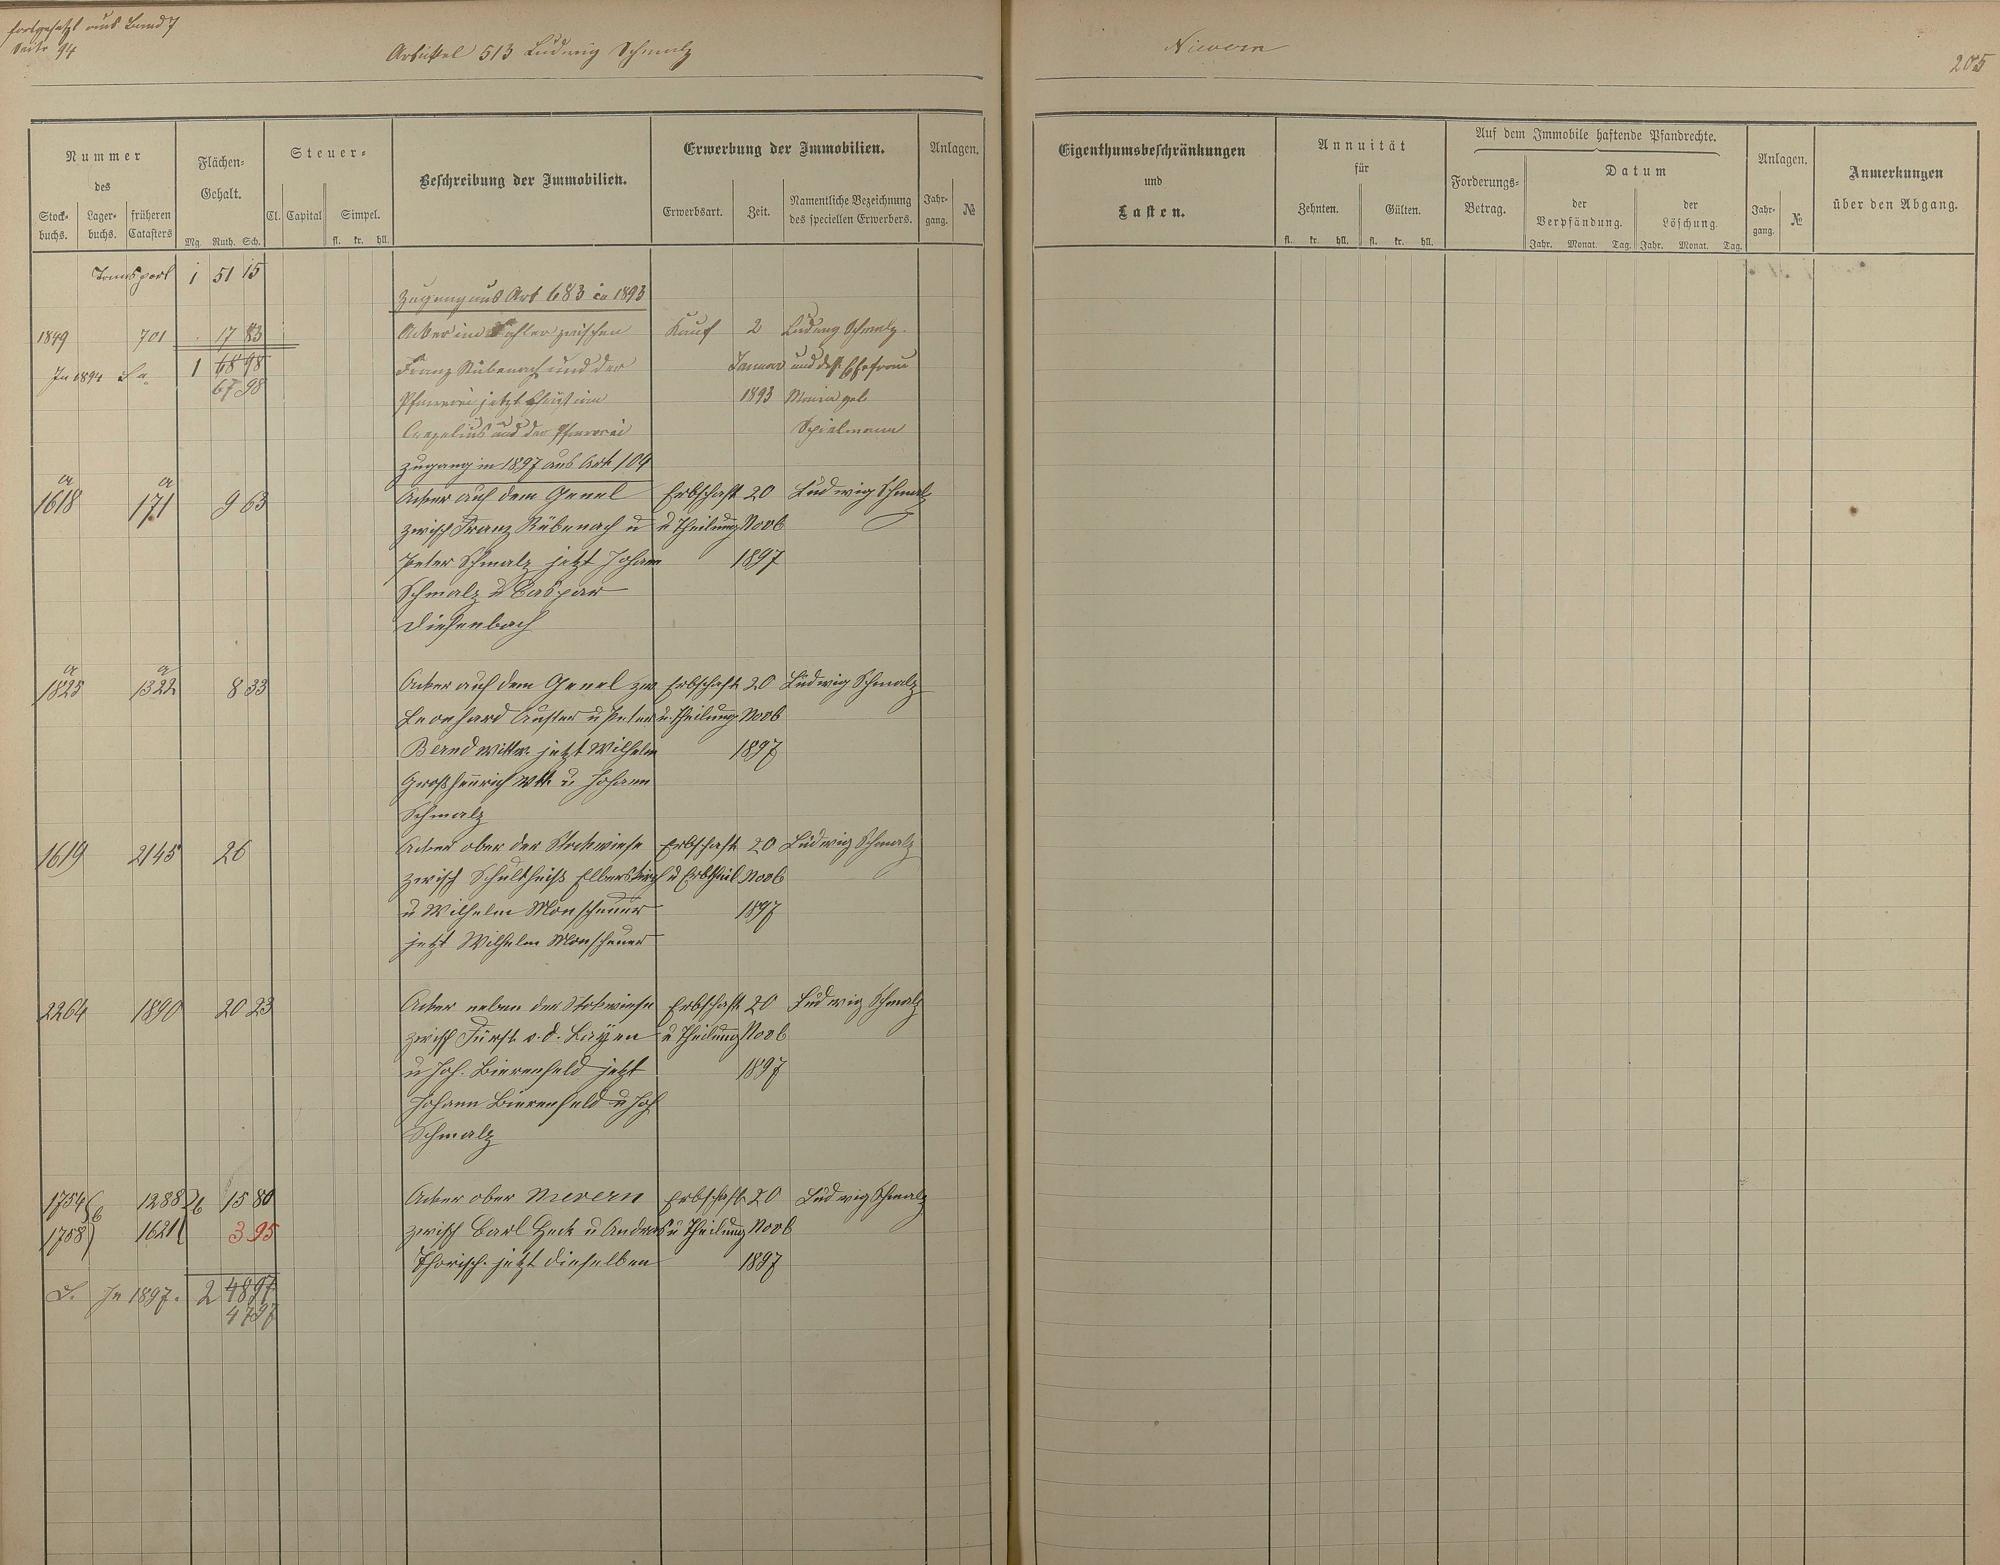 fortgesetzt aus Band 7
Seite 94
Artikel 513 Ludwig Schmalz
Nievern
205
Nummer
des
Stock-
buchs.
Lager-
buchs.
früheren
Catasters
Flächen-
Gehalt.
Mg. Ruth. Sch.
Steuer-
Cl. Capital Simpel.
fl. kr. hll.
Beschreibung der Immobilien.
Erwerbung der Immobilien.
Erwerbsart. Zeit.
Namentliche Bezeichnung
des speciellen Erwerbers.
Anlagen.
Jahr-
gang.
№
Eigenthumsbeschränkungen
und
Lasten.
Annuität
für
Zehnten. Gülten.
fl. kr. hll. fl. kr. hll.
Auf dem Immobile haftende Pfandrechte.
Forderungs-
Betrag.
Datum
der
Verpfändung.
der
Löschung.
Jahr. Monat. Tag. Jahr. Monat. Tag.
Anlagen.
Jahr-
gang.
№
Anmerkungen
über den Abgang.
Transport 1 51 15
Zugang aus Art 683 in 1893
1849 701 17 83 Acker im zwischen Kauf 2 Ludwig Schmalz
In 1894 Sa. 1 68 98 Franz Rübenach und der Januar und dess. Ehefrau
67 98
Pfarrei jetzt 1893 Maria geb.
und der Pfarrei Spielmann
Zugang in 1897 aus Art 104
a a
1618 171 9 63 Acker auf dem Genel Erbschaft 20 Ludwig Schmalz
zwisch Franz Rübenach u u Theilung Novb
Peter Schmalz jetzt Johann 1897
Schmalz u Caspar
Diefenbach
a a
1825 1322 8 33 Acker auf dem Genel zw Erbschaft 20 Ludwig Schmalz
Leonhard u Peter u. Theilung Novb
Bernd Wittw. jetzt Wilhelm 1897
Großhenrich Wtt. u Johann
Schmalz
1619 2145 26 Acker ober der Stockwiese Erbschaft 20 Ludwig Schmalz
zwisch Schultheiß Elberskirch u Erbtheil Novb
u Wilhelm Monscheuer 1897
jetzt Wilhelm Monscheuer
2264 1890 20 23 Acker neben der Stockwiese Erbschaft 20 Ludwig Schmalz
zwisch Fürst v. d. Layen u Theilung Novb
u Joh. Bierenfeld jetzt 1897
Johann Bierenfeld u Joh
Schmalz
1754 b 1288 26 15 80 Acker ober Nievern Erbschaft 20 Ludwig Schmalz
1758 1621 3 95 zwisch Carl Heck u Andreas u Theilung Novb
Thorisch. jetzt dieselben 1897
S. In 1897. 2 48 97
47 97